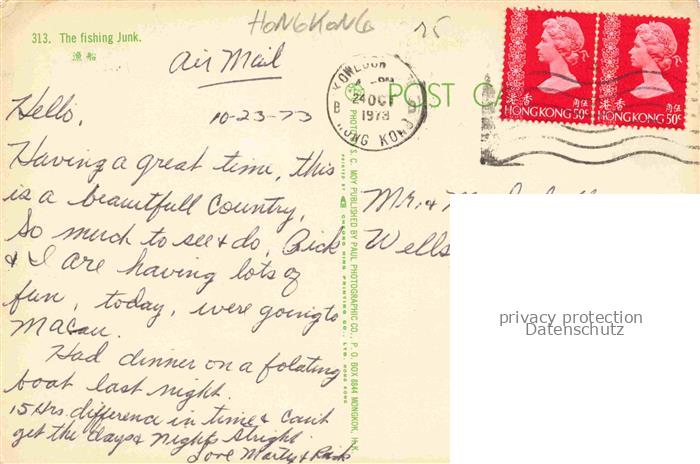 HONGKONG 25
313. The fishing Junk.
漁船
Air Mail
KOWLOON
B
4 - PM
24 OCT
1973
HONG KONG
POST
香港 伍角
HONG KONG 50¢
香港 伍角
HONG KONG 50¢
Hello, 10-23-73
Having a great time, this
is a beautfull Country,
So much to see & do, Dick
& I are having lots of
fun, today, were going to
Macau.
Had dinner on a folating
boat last night.
15 Hrs. difference in time & can't
get the days & nights stright.
Love Marty &
PHOTO S. C. MOY PUBLISHED BY PAUL PHOTOGRAPHIC CO., P. O. BOX 8844 MONGKOK, H.K.
PRINTED BY CHEONG MING PRINTING CO., LTD. HONG KONG
Mr. &
Wells
privacy protection
Datenschutz